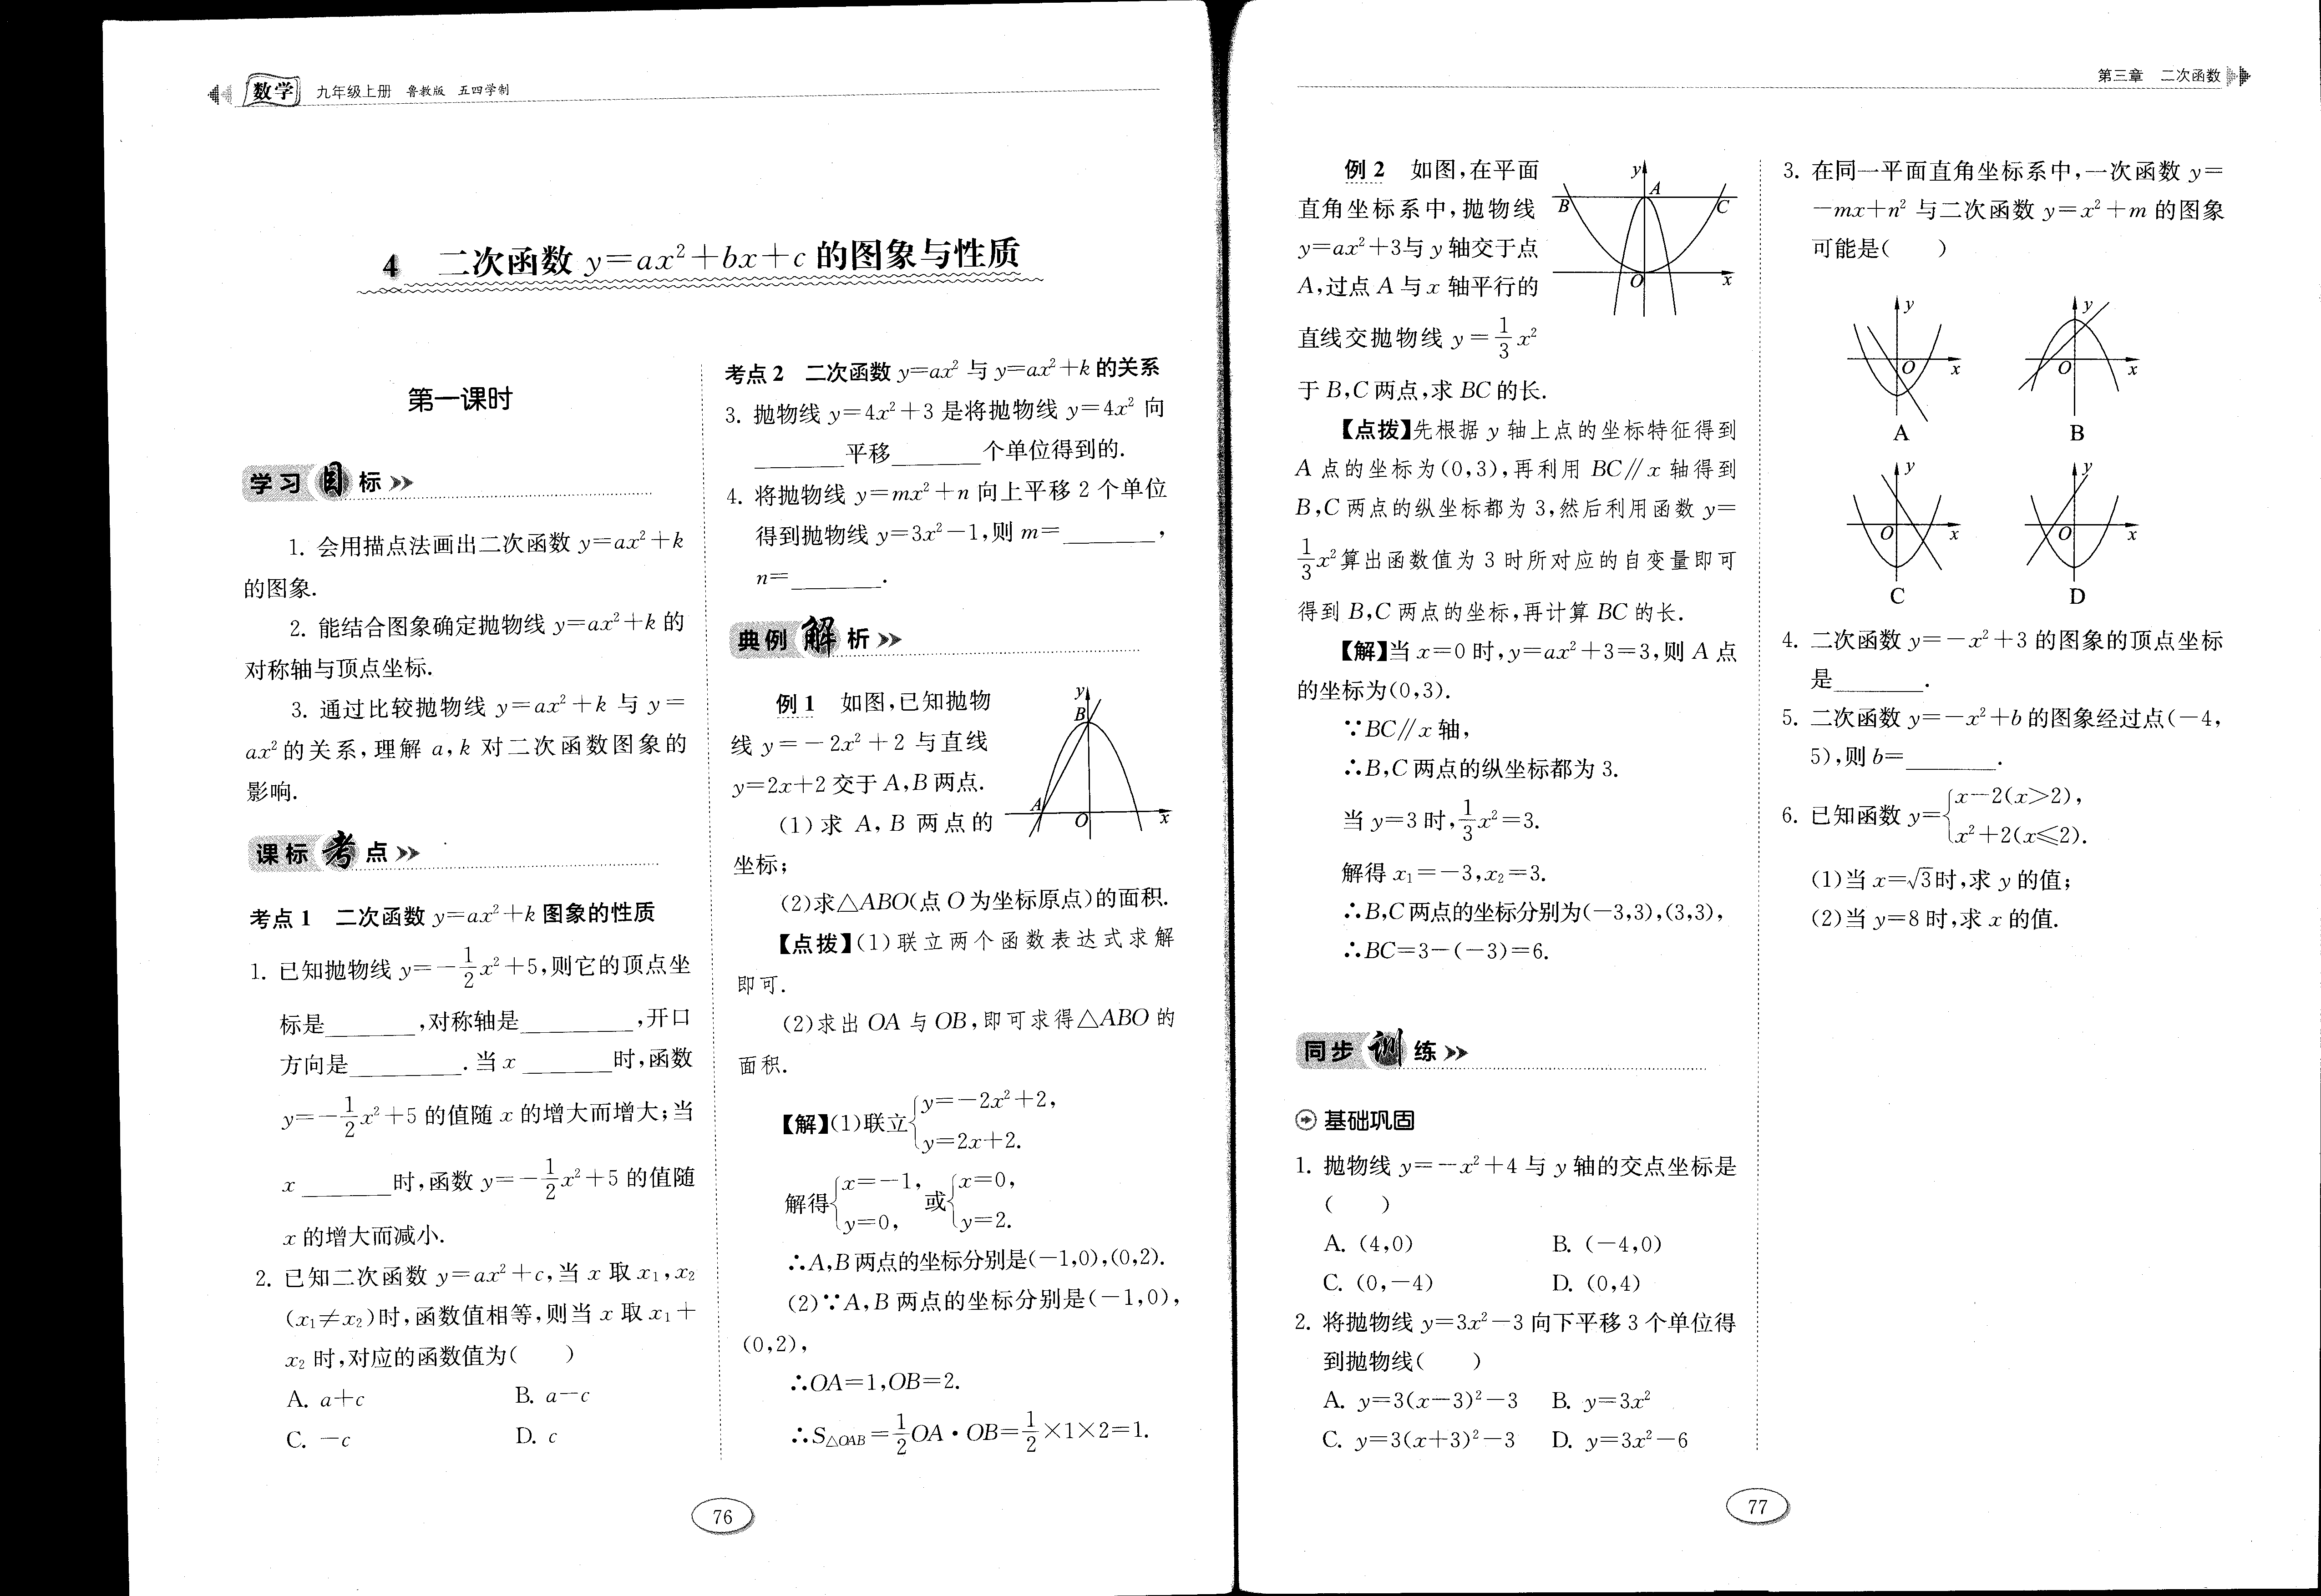 数学 九年级上册 鲁教版 五四学制
4 二次函数 y=ax²+bx+c 的图象与性质
第一课时
学习目标
1. 会用描点法画出二次函数 y=ax²+k
的图象.
2. 能结合图象确定抛物线 y=ax²+k 的
对称轴与顶点坐标.
3. 通过比较抛物线 y=ax²+k 与 y=
ax² 的关系,理解 a,k 对二次函数图象的
影响.
课标考点
考点 1 二次函数 y=ax²+k 图象的性质
1. 已知抛物线 y=-1/2x²+5,则它的顶点坐
标是________,对称轴是__________,开口
方向是__________.当 x ________时,函数
y=-1/2x²+5 的值随 x 的增大而增大;当
x ________时,函数 y=-1/2x²+5 的值随
x 的增大而减小.
2. 已知二次函数 y=ax²+c,当 x 取 x₁,x₂
(x₁≠x₂)时,函数值相等,则当 x 取 x₁+
x₂ 时,对应的函数值为( )
A. a+c B. a-c
C. -c D. c
考点 2 二次函数 y=ax² 与 y=ax²+k 的关系
3. 抛物线 y=4x²+3 是将抛物线 y=4x² 向
________平移________个单位得到的.
4. 将抛物线 y=mx²+n 向上平移 2 个单位
得到抛物线 y=3x²-1,则 m=________,
n=________.
典例解析
例 1 如图,已知抛物
线 y=-2x²+2 与直线
y=2x+2 交于 A,B 两点.
(1)求 A,B 两点的
坐标;
y
B
A
O
x
(2)求△ABO(点 O 为坐标原点)的面积.
【点拨】(1)联立两个函数表达式求解
即可.
(2)求出 OA 与 OB,即可求得△ABO 的
面积.
【解】(1)联立{y=-2x²+2,
y=2x+2.
解得{x=-1, 或{x=0,
y=0, y=2.
∴A,B 两点的坐标分别是(-1,0),(0,2).
(2)∵A,B 两点的坐标分别是(-1,0),
(0,2),
∴OA=1,OB=2.
∴S△OAB=1/2OA·OB=1/2×1×2=1.
76
第三章 二次函数
例 2 如图,在平面
直角坐标系中,抛物线
y=ax²+3与 y 轴交于点
A,过点 A 与 x 轴平行的
直线交抛物线 y=1/3x²
于 B,C 两点,求 BC 的长.
y
A
B
C
O
x
【点拨】先根据 y 轴上点的坐标特征得到
A 点的坐标为(0,3),再利用 BC∥x 轴得到
B,C 两点的纵坐标都为 3,然后利用函数 y=
1/3x²算出函数值为 3 时所对应的自变量即可
得到 B,C 两点的坐标,再计算 BC 的长.
【解】当 x=0 时,y=ax²+3=3,则 A 点
的坐标为(0,3).
∵BC∥x 轴,
∴B,C 两点的纵坐标都为 3.
当 y=3 时,1/3x²=3.
解得 x₁=-3,x₂=3.
∴B,C 两点的坐标分别为(-3,3),(3,3),
∴BC=3-(-3)=6.
同步训练
基础巩固
1. 抛物线 y=-x²+4 与 y 轴的交点坐标是
( )
A. (4,0) B. (-4,0)
C. (0,-4) D. (0,4)
2. 将抛物线 y=3x²-3 向下平移 3 个单位得
到抛物线( )
A. y=3(x-3)²-3 B. y=3x²
C. y=3(x+3)²-3 D. y=3x²-6
3. 在同一平面直角坐标系中,一次函数 y=
-mx+n² 与二次函数 y=x²+m 的图象
可能是( )
y y
O x O x
A B
y y
O x O x
C D
4. 二次函数 y=-x²+3 的图象的顶点坐标
是________.
5. 二次函数 y=-x²+b 的图象经过点(-4,
5),则 b=________.
6. 已知函数 y={x-2(x>2),
x²+2(x≤2).
(1)当 x=√3时,求 y 的值;
(2)当 y=8 时,求 x 的值.
77